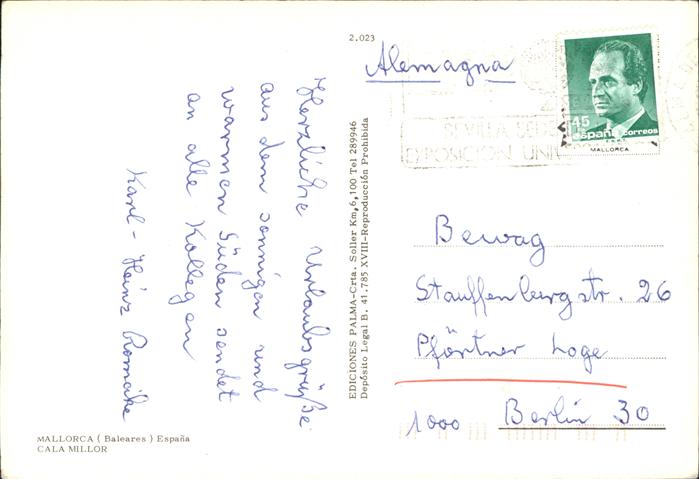 2.023
Alemagna
45
españa correos
MALLORCA
SEVILLA SEDE
EXPOSICION UNIV
Herzliche Urlaubsgrüße
aus dem sonnigen und
warmen Süden sendet
an alle Kollegen
Karl-Heinz Romaike
EDICIONES PALMA-Crta. Soller Km,6,100 Tel 289946
Depósito Legal B. 41.785 XVIII-Reproducción Prohibida
Bewag
Stauffenbergstr. 26
Pförtner Loge
1000 Berlin 30
MALLORCA ( Baleares ) España
CALA MILLOR